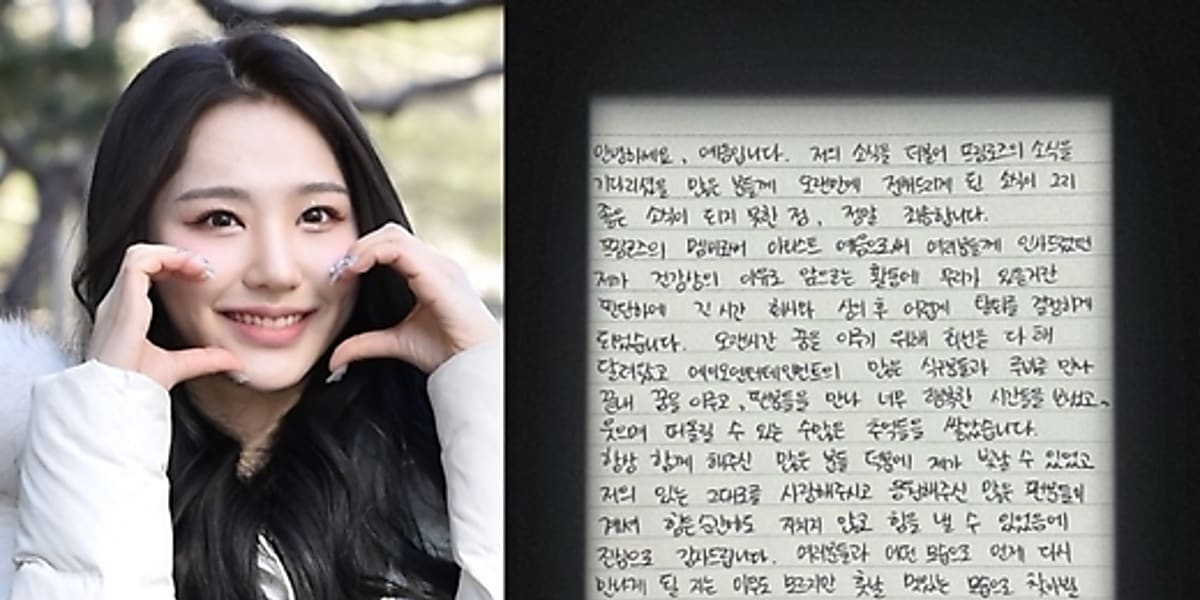 안녕하세요, 예음입니다. 저의 소식을 더불어 프림로즈의 소식을
기다리셨을 많은 분들께 오랜만에 전해드리게 된 소식이 그리
좋은 소식이 되지 못한 점, 정말 죄송합니다.
프림로즈의 멤버로써 아티스트 예음으로써 여러분들께 인사드렸던
제가 건강상의 이유로 앞으로는 활동에 무리가 있을거란
판단하에 긴 시간 회사와 상의 후 어렵게 탈퇴를 결정하게
되었습니다. 오랜시간 꿈을 이루기 위해 최선을 다 해
달려왔고 에이오엔터테인먼트의 많은 식구분들과 주비를 만나
끝내 꿈을 이루고, 팬분들을 만나 너무 행복한 시간들을 보냈고,
웃으며 떠올릴 수 있는 수많은 추억들을 쌓았습니다.
항상 함께 해주신 많은 분들 덕분에 제가 빛날 수 있었고
저의 있는 그대로를 사랑해주시고 응원해주신 많은 팬분들이
계셔서 힘든순간에도 지치지 않고 힘을 낼 수 있었음에
진심으로 감사드립니다. 여러분들과 어떤 모습으로 언제 다시
만나게 될 지는 아무도 모르지만 훗날 멋있는 모습으로 찾아뵐